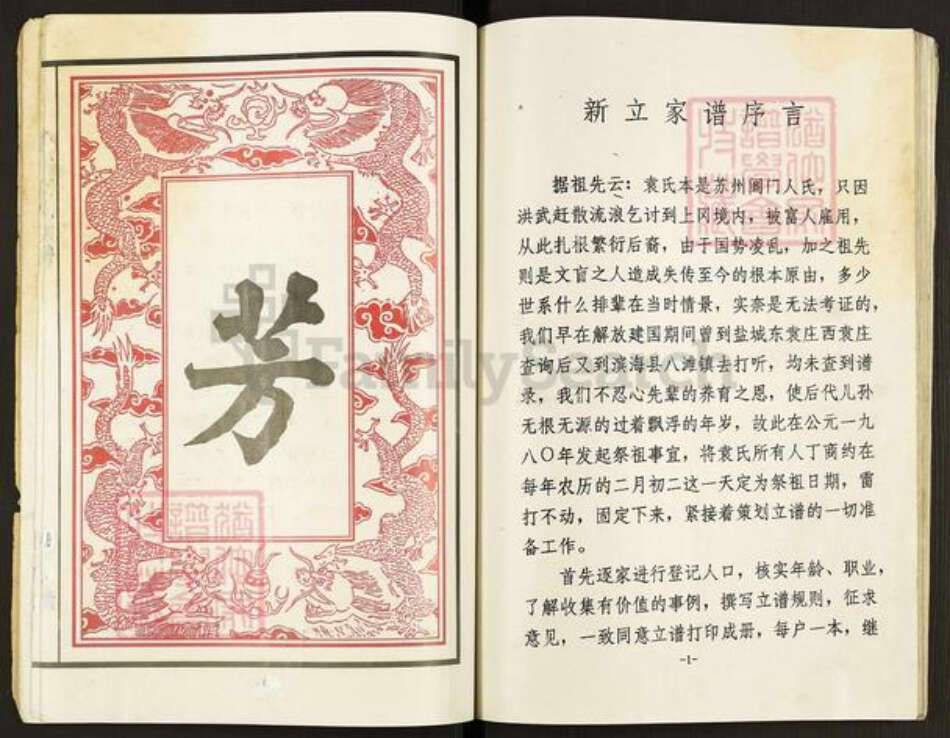 芳
新立家谱序言
据祖先云：袁氏本是苏州阊门人氏，只因
洪武赶散流浪乞计到上冈境内，被富人雇用，
从此扎根繁衍后裔，由于国势凌乱，加之祖先
则是文盲之人造成失传至今的根本原由，多少
世系什么排辈在当时情景，实奈是无法考证的，
我们早在解放建国期间曾到盐城东袁庄西袁庄
查询后又到滨海县八滩镇去打听，均未查到谱
录，我们不忍心先辈的养育之恩，使后代儿孙
无根无源的过着飘浮的年岁，故此在公元一九
八〇年发起祭祖事宜，将袁氏所有人丁商约在
每年农历的二月初二这一天定为祭祖日期，雷
打不动，固定下来，紧接着策划立谱的一切准
备工作。
首先逐家进行登记人口，核实年龄、职业，
了解收集有价值的事例，撰写立谱规则，征求
意见，一致同意立谱打印成册，每户一本，继
-1-
FamilySearch